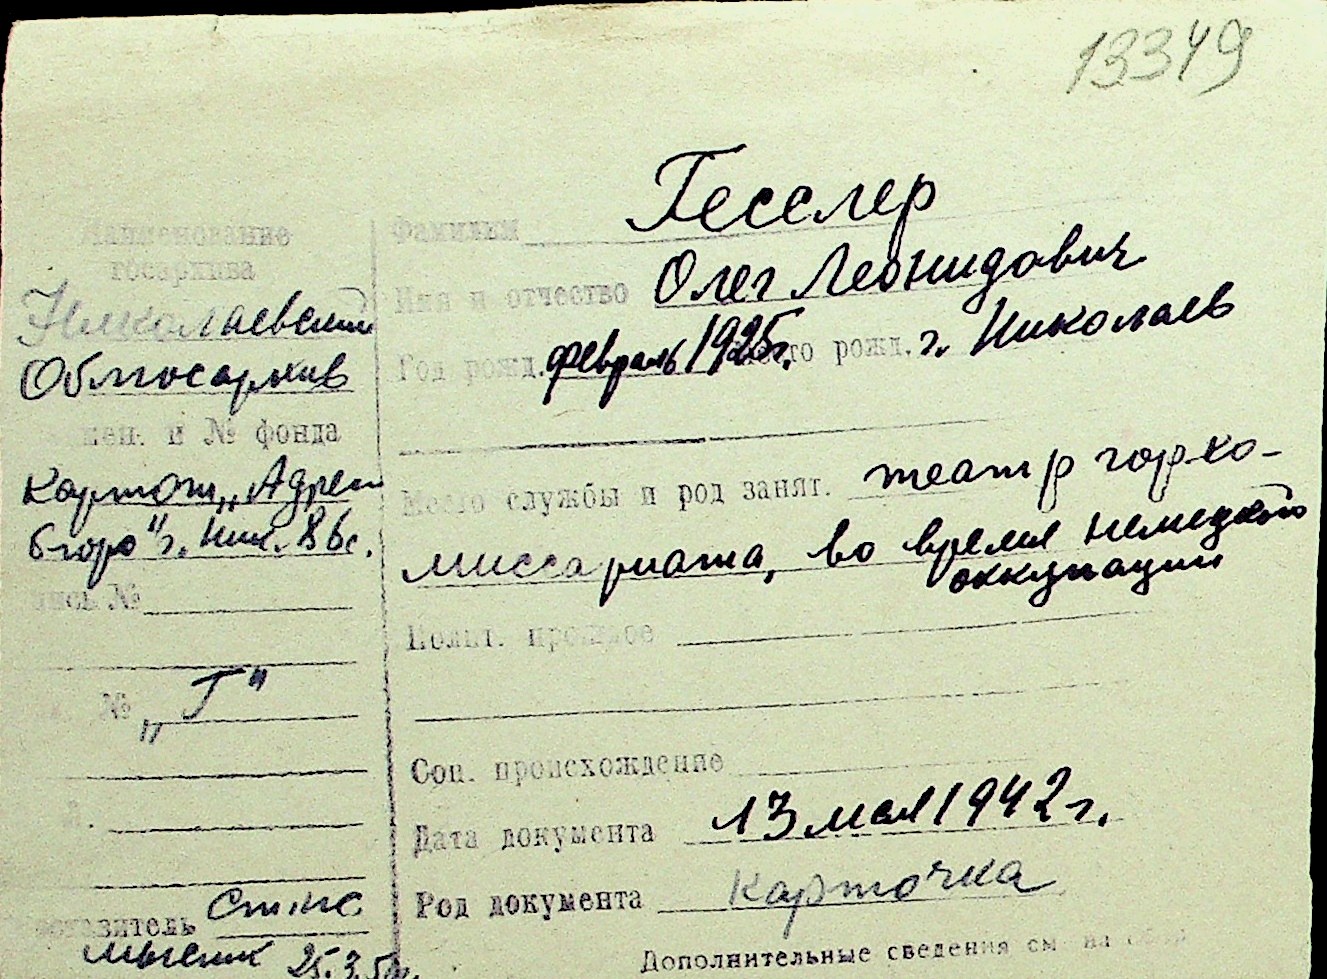 13349
Наименование
госархива
Николаевский
Облгосархив
и № фонда
"Адрес
бюро" г. Ник.
№
№ "Г"
25.3.
Фамилия Гесслер
Имя и отчество Олег Леонидович
Год рожд. февраль 1925г. Место рожд. г. Николаев
Место службы и род занят. театр горко-
миссариата, во время немецкой
оккупации
Полит. прошлое
Соц. происхождение
Дата документа 13 мая 1942 г.
Род документа Карточка
Дополнительные сведения см. на